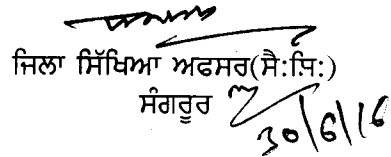 ਜਿਲਾ ਸਿੱਖਿਆ ਅਫਸਰ(ਸੈ:ਸਿ:)
ਸੰਗਰੂਰ
30/6/16